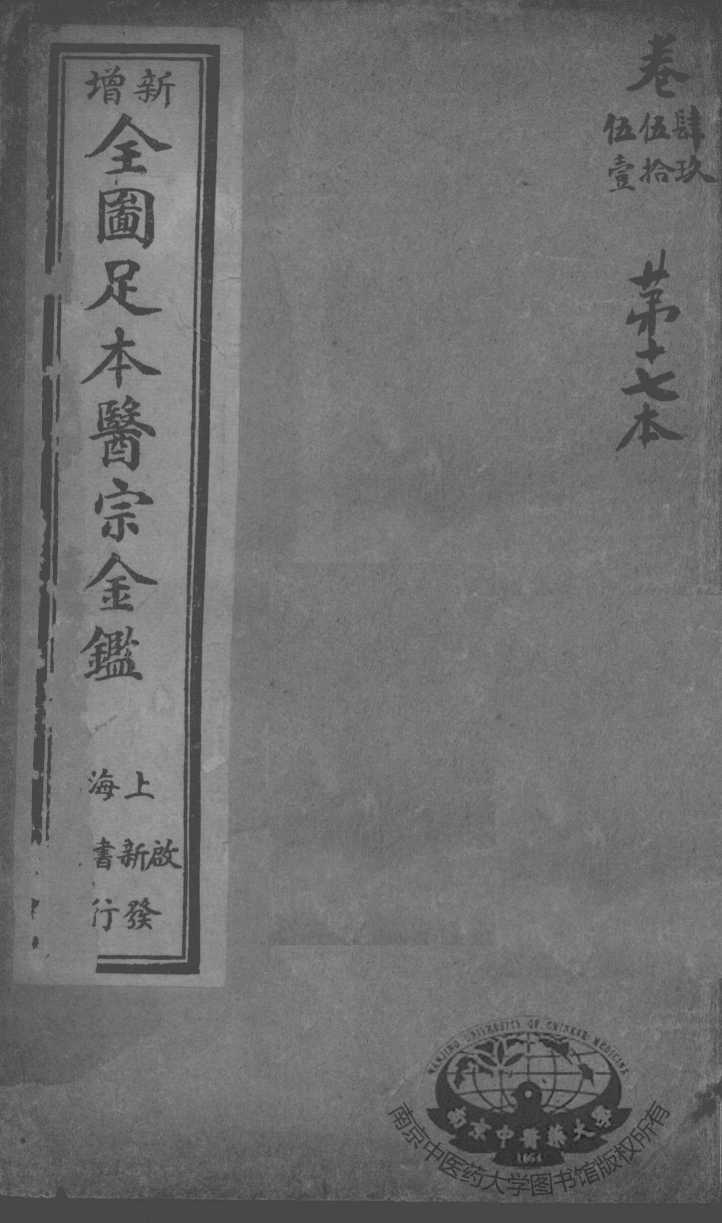 卷
肆玖
伍拾
伍壹
苐十七本
新增
全圖足本醫宗金鑑
上海
啟新書
發行
NANJING UNIVERSITY OF CHINESE MEDICINE
南京中醫藥大學
1954
南京中医药大学图书馆版权所有